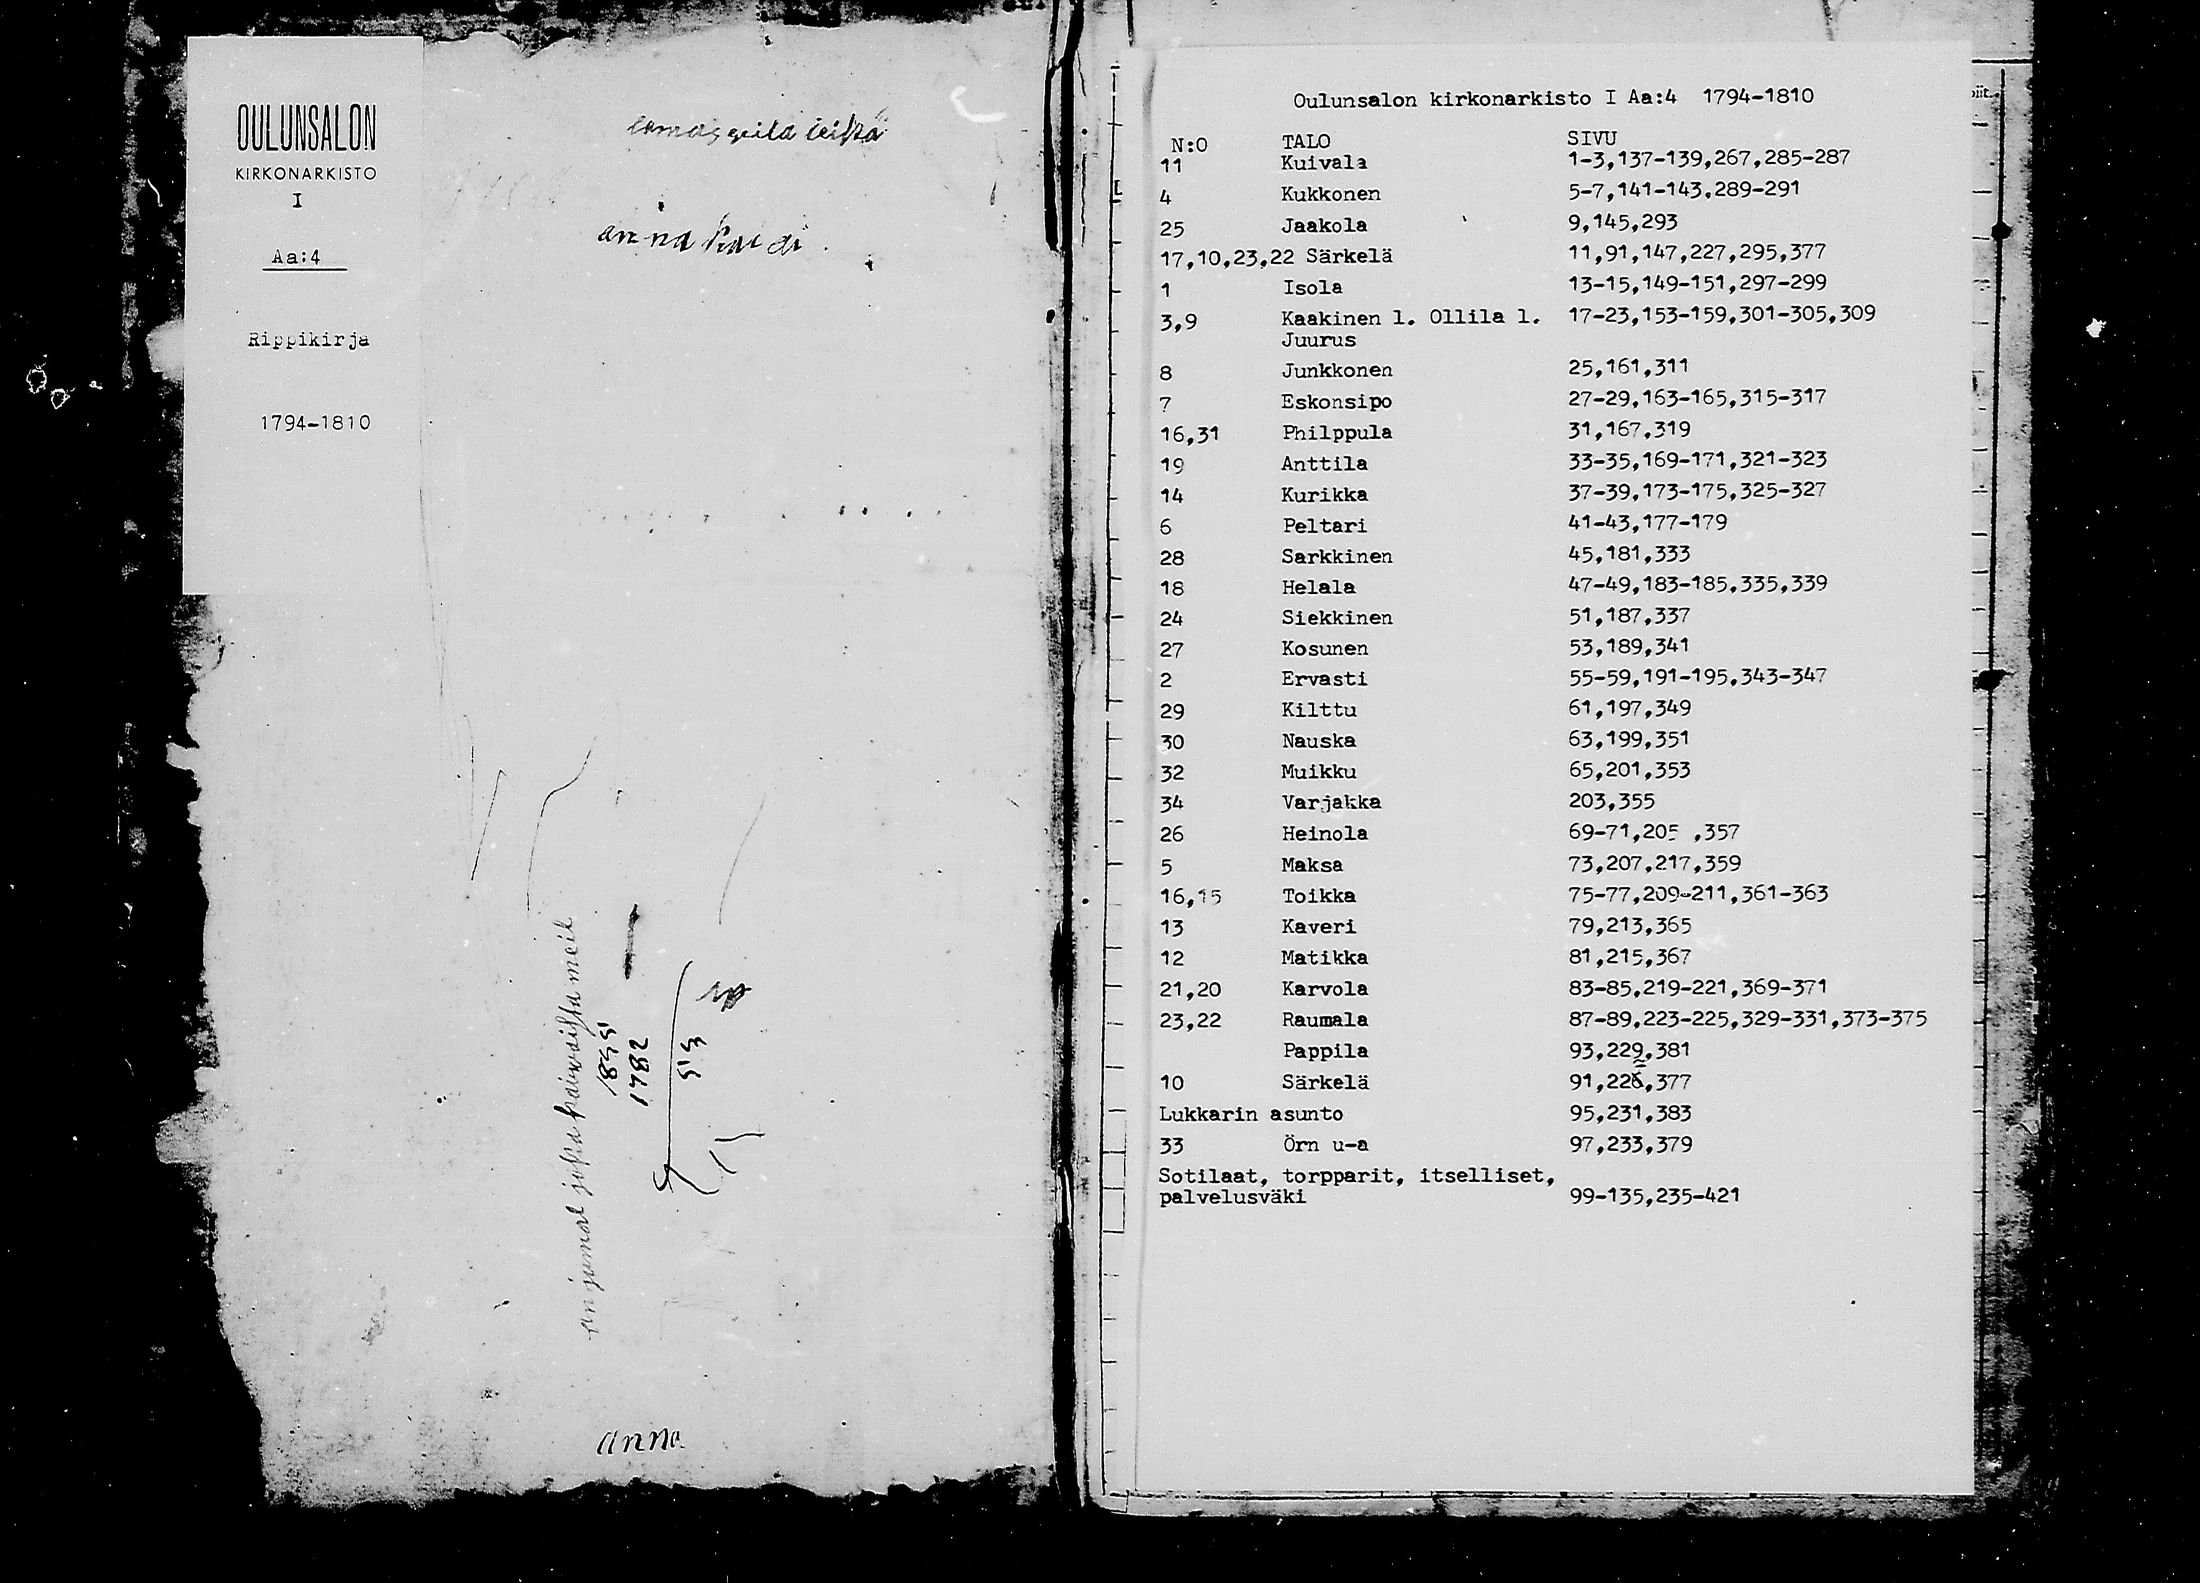 OULUNSALON
KIRKONARKISTO
I
Aa:4
Rippikirja
1794-1810
anna
1895
1782
513
anna
Oulunsalon kirkonarkisto I Aa:4 1794-1810
N:O TALO SIVU
11 Kuivala 1-3,137-139,267,285-287
4 Kukkonen 5-7,141-143,289-291
25 Jaakola 9,145,293
17,10,23,22 Särkelä 11,91,147,227,295,377
1 Isola 13-15,149-151,297-299
3,9 Kaakinen l. Ollila l. 17-23,153-159,301-305,309
Juurus
8 Junkkonen 25,161,311
7 Eskonsipo 27-29,163-165,315-317
16,31 Philppula 31,167,319
19 Anttila 33-35,169-171,321-323
14 Kurikka 37-39,173-175,325-327
6 Peltari 41-43,177-179
28 Sarkkinen 45,181,333
18 Helala 47-49,183-185,335,339
24 Siekkinen 51,187,337
27 Kosunen 53,189,341
2 Ervasti 55-59,191-195,343-347
29 Kilttu 61,197,349
30 Nauska 63,199,351
32 Muikku 65,201,353
34 Varjakka 203,355
26 Heinola 69-71,205 ,357
5 Maksa 73,207,217,359
16,15 Toikka 75-77,209-211,361-363
13 Kaveri 79,213,365
12 Matikka 81,215,367
21,20 Karvola 83-85,219-221,369-371
23,22 Raumala 87-89,223-225,329-331,373-375
Pappila 93,229,381
10 Särkelä 91,22 ,377
Lukkarin asunto 95,231,383
33 Örn u-a 97,233,379
Sotilaat, torpparit, itselliset,
palvelusväki 99-135,235-421